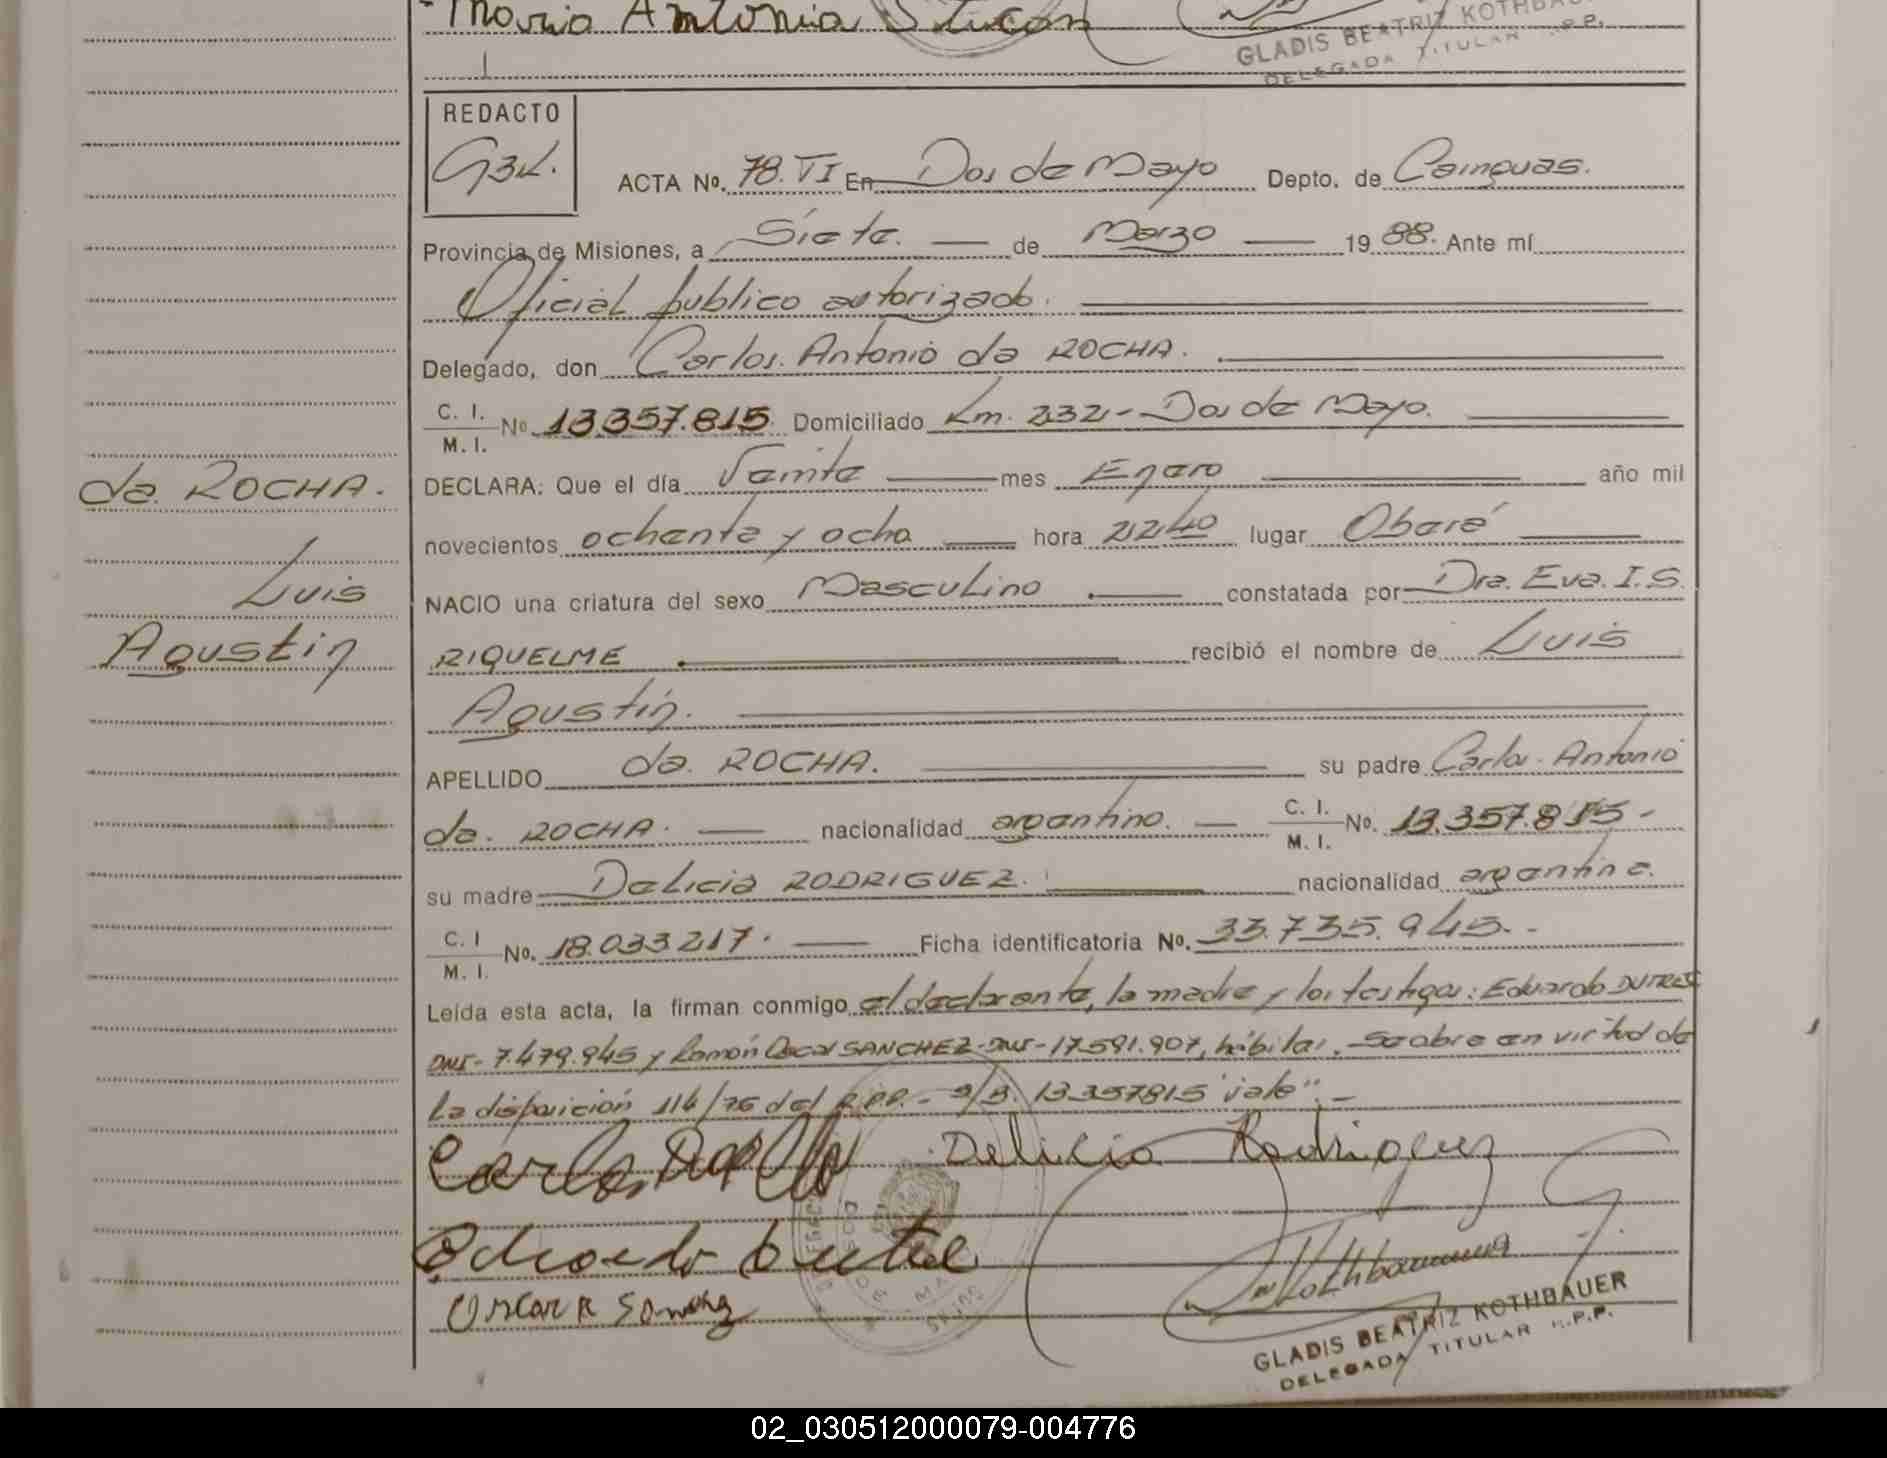 Maria Antonia
GLADIS BEATRIZ KOTHBAUER
DELEGADA TITULAR R.P.P.
REDACTO
GBK.
ACTA No. 78. VI En Dos de Mayo Depto. de Cainguas.
Provincia de Misiones, a Siete. — de Marzo — 19 88. Ante mí
Oficial publico autorizado.
Delegado, don Carlos. Antonio da ROCHA.
C. I.
M. I.
No. 13.357.815. Domiciliado Km. 232 - Dos de Mayo.
DECLARA: Que el día Veinte — mes Enero — año mil
novecientos ochenta y ocho — hora 22,40 lugar Oberá —
NACIO una criatura del sexo Masculino — constatada por Dra. Eva. I. S.
RIQUELME — recibió el nombre de Luis
Agustín.
APELLIDO da. ROCHA. — su padre Carlos. Antonio
da. ROCHA. — nacionalidad argentino. — C. I.
M. I.
No. 13.357.815 -
su madre Delicia RODRIGUEZ. — nacionalidad argentina.
C. I
M. I.
No. 18.033.217. — Ficha identificatoria No. 33.735.945. -
Leída esta acta, la firman conmigo el declarante, la madre y los testigos: Eduardo
DNI- 7.479.945 y Ramón Oscar SANCHEZ-DNI-17.591.907, hábiles. - Se abre en virtud de
la disposición 114/76 del R.P.P. - S/B. 13357815 "vale". -
da. ROCHA.
Luis
Agustin
Carlos
Delicia Rodriguez
Oscar R Sanchez
Kothbauer
GLADIS BEATRIZ KOTHBAUER
DELEGADA TITULAR R.P.P.
02_030512000079-004776